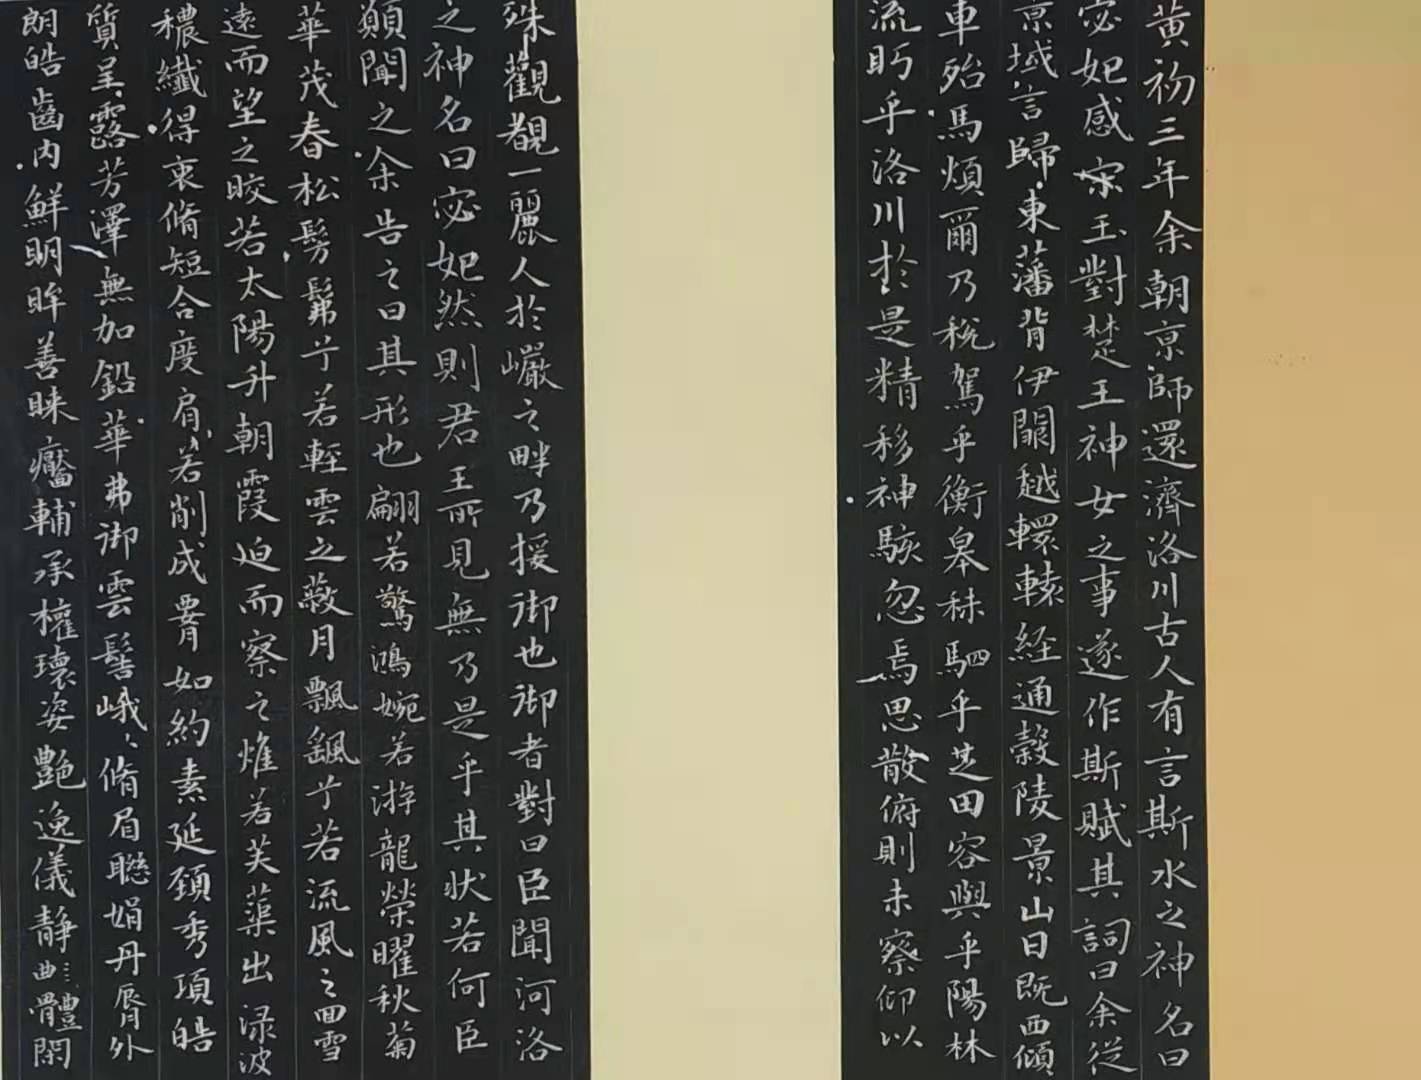 黄初三年余朝京師還濟洛川古人有言斯水之神名曰
宓妃感宋玉對楚王神女之事遂作斯賦其詞曰余從
京域言歸東藩背伊闕越轘轅経通穀陵景山日既西傾
車殆馬煩爾乃稅駕乎衡皋秣駟乎芝田容與乎陽林
流眄乎洛川於是精移神駭忽焉思散俯則未察仰以
殊觀覩一麗人於巖之畔乃援御也御者對曰臣聞河洛
之神名曰宓妃然則君王所見無乃是乎其狀若何臣
願聞之余告之曰其形也翩若驚鴻婉若游龍榮曜秋菊
華茂春松髣髴兮若輕雲之蔽月飄颻兮若流風之回雪
遠而望之晈若太陽升朝霞迫而察之焳若芙蕖出渌波
穠纖得衷脩短合度肩若削成腰如約素延頸秀項皓
質呈露芳澤無加鉛華弗御雲髻峨〻脩眉聯娟丹脣外
朗皓齒内鮮明眸善睞靨輔承權瓌姿艷逸儀靜體閑